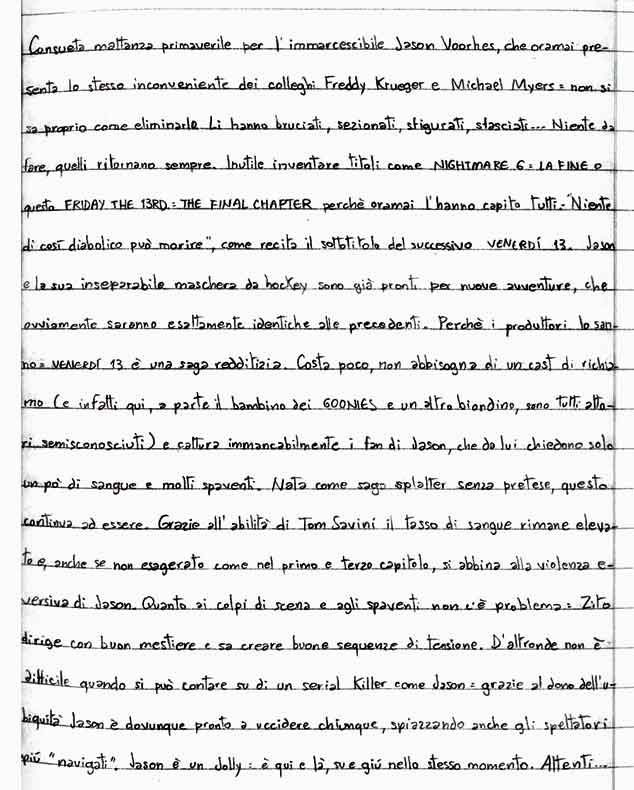 Consueta mattanza primaverile per l'immarcescibile Jason Voorhes, che oramai pre-
senta lo stesso inconveniente dei colleghi Freddy Krueger e Michael Myers: non si
sa proprio come eliminarlo. Li hanno bruciati, sezionati, sfigurati, sfasciati... Niente da
fare, quelli ritornano sempre. Inutile inventare titoli come NIGHTMARE 6: LA FINE o
questo FRIDAY THE 13RD: THE FINAL CHAPTER perchè oramai l'hanno capito tutti: "Niente
di così diabolico può morire", come recita il sottotitolo del successivo VENERDÍ 13. Jason
e la sua inseparabile maschera da hockey sono già pronti per nuove avventure, che
ovviamente saranno esattamente identiche alle precedenti. Perchè i produttori lo san-
no: VENERDÍ 13 è una saga redditizia. Costa poco, non abbisogna di un cast di richia-
mo (e infatti qui, a parte il bambino dei GOONIES e un altro biondino, sono tutti atto-
ri semisconosciuti) e cattura immancabilmente i fan di Jason, che da lui chiedono solo
un po' di sangue e molti spaventi. Nata come saga splatter senza pretese, questo
continua ad essere. Grazie all'abilità di Tom Savini il tasso di sangue rimane eleva-
to e, anche se non esagerato come nel primo e terzo capitolo, si abbina alla violenza e-
versiva di Jason. Quanto ai colpi di scena e agli spaventi non c'è problema: Zito
dirige con buon mestiere e sa creare buone sequenze di tensione. D'altronde non è
difficile quando si può contare su di un serial killer come Jason: grazie al dono dell'u-
biquità Jason è dovunque pronto a uccidere chiunque, spiazzando anche gli spettatori
più "navigati". Jason è un Jolly: è qui e là, su e giú nello stesso momento. Attenti...